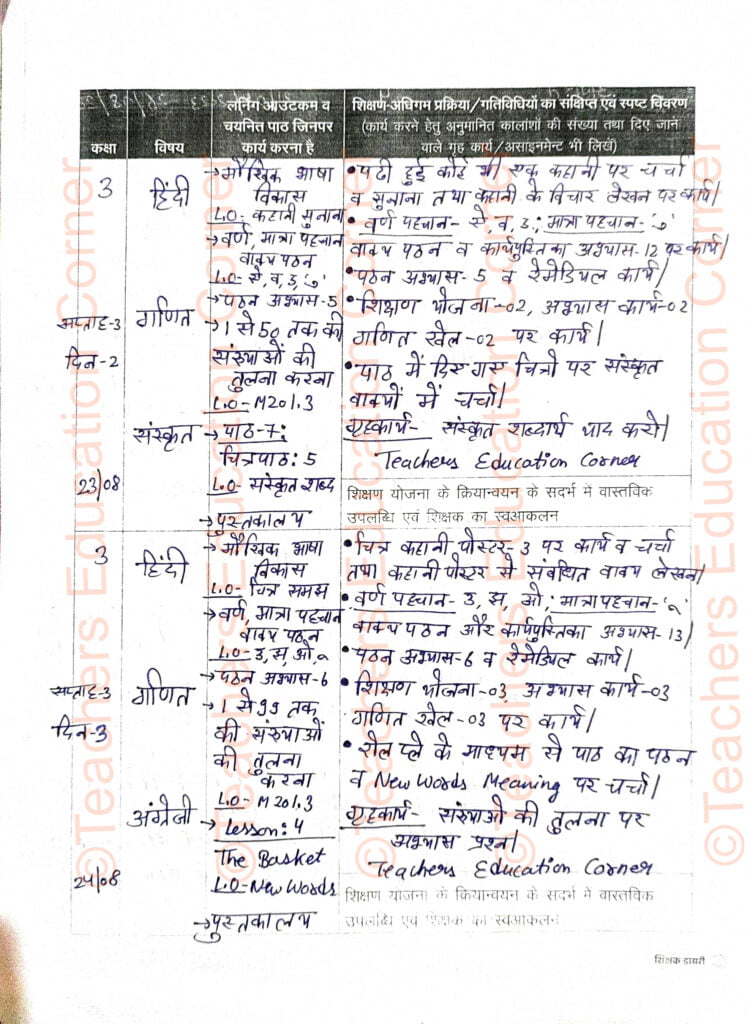 कक्षा
विषय
लर्निंग आउटकम व
चयनित पाठ जिनपर
कार्य करना है
शिक्षण-अधिगम प्रक्रिया/गतिविधियों का संक्षिप्त एवं स्पष्ट विवरण
(कार्य करने हेतु अनुमानित कालांशों की संख्या तथा दिए जाने
वाले गृह कार्य/असाइनमेन्ट भी लिखें)
3
सप्ताह-3
दिन-2
23/08
हिंदी
गणित
संस्कृत
→मौखिक भाषा
विकास
L.O- कहानी सुनाना
→वर्ण, मात्रा पहचान
वाक्य पठन
L.O- से, व, उ,
→पठन अभ्यास-5
→1 से 50 तक की
संख्याओं की
तुलना करना
L.O- M201.3
→पाठ-7:
चित्रपाठ: 5
L.O- संस्कृत शब्द
→पुस्तकालय
• पढ़ी हुई कोई भी एक कहानी पर चर्चा
व सुनाना तथा कहानी के विचार लेखन पर कार्य|
• वर्ण पहचान- से, व, उ; मात्रा पहचान-
वाक्य पठन व कार्यपुस्तिका अभ्यास-12 पर कार्य|
• पठन अभ्यास-5 व रेमेडियल कार्य|
• शिक्षण योजना-02, अभ्यास कार्य-02
गणित खेल-02 पर कार्य|
• पाठ में दिए गए चित्रो पर संस्कृत
वाक्यों में चर्चा|
गृहकार्य- संस्कृत शब्दार्थ याद करो|
Teachers Education Corner
शिक्षण योजना के क्रियान्वयन के सदर्भ में वास्तविक
उपलब्धि एवं शिक्षक का स्वआकलन
3
सप्ताह-3
दिन-3
24/08
हिंदी
गणित
अंग्रेजी
→मौखिक भाषा
विकास
L.O- चित्र समझ
→वर्ण, मात्रा पहचान
वाक्य पठन
L.O- उ, झ, ओ, ू
→पठन अभ्यास-6
→1 से 99 तक
की संख्याओं
की तुलना
करना
L.O- M201.3
→Lesson: 4
The Basket
L.O- New Words
→पुस्तकालय
• चित्र कहानी पोस्टर-3 पर कार्य व चर्चा
तथा कहानी पोस्टर से संबंधित वाक्य लेखन|
• वर्ण पहचान- उ, झ, ओ; मात्रा पहचान-'ू'
वाक्य पठन और कार्यपुस्तिका अभ्यास-13|
• पठन अभ्यास-6 व रेमेडियल कार्य|
• शिक्षण योजना-03, अभ्यास कार्य-03
गणित खेल-03 पर कार्य|
• रोल प्ले के माध्यम से पाठ का पठन
व New Words Meaning पर चर्चा|
गृहकार्य- संख्याओं की तुलना पर
अभ्यास प्रश्न|
Teachers Education Corner
शिक्षण योजना के क्रियान्वयन के सदर्भ में वास्तविक
उपलब्धि एवं शिक्षक का स्वआकलन
शिक्षक डायरी
©Teachers Education Corner
©Teachers Education Corner
©Teachers Education Corner
©Teachers Education Corner
©Teachers Education Corner